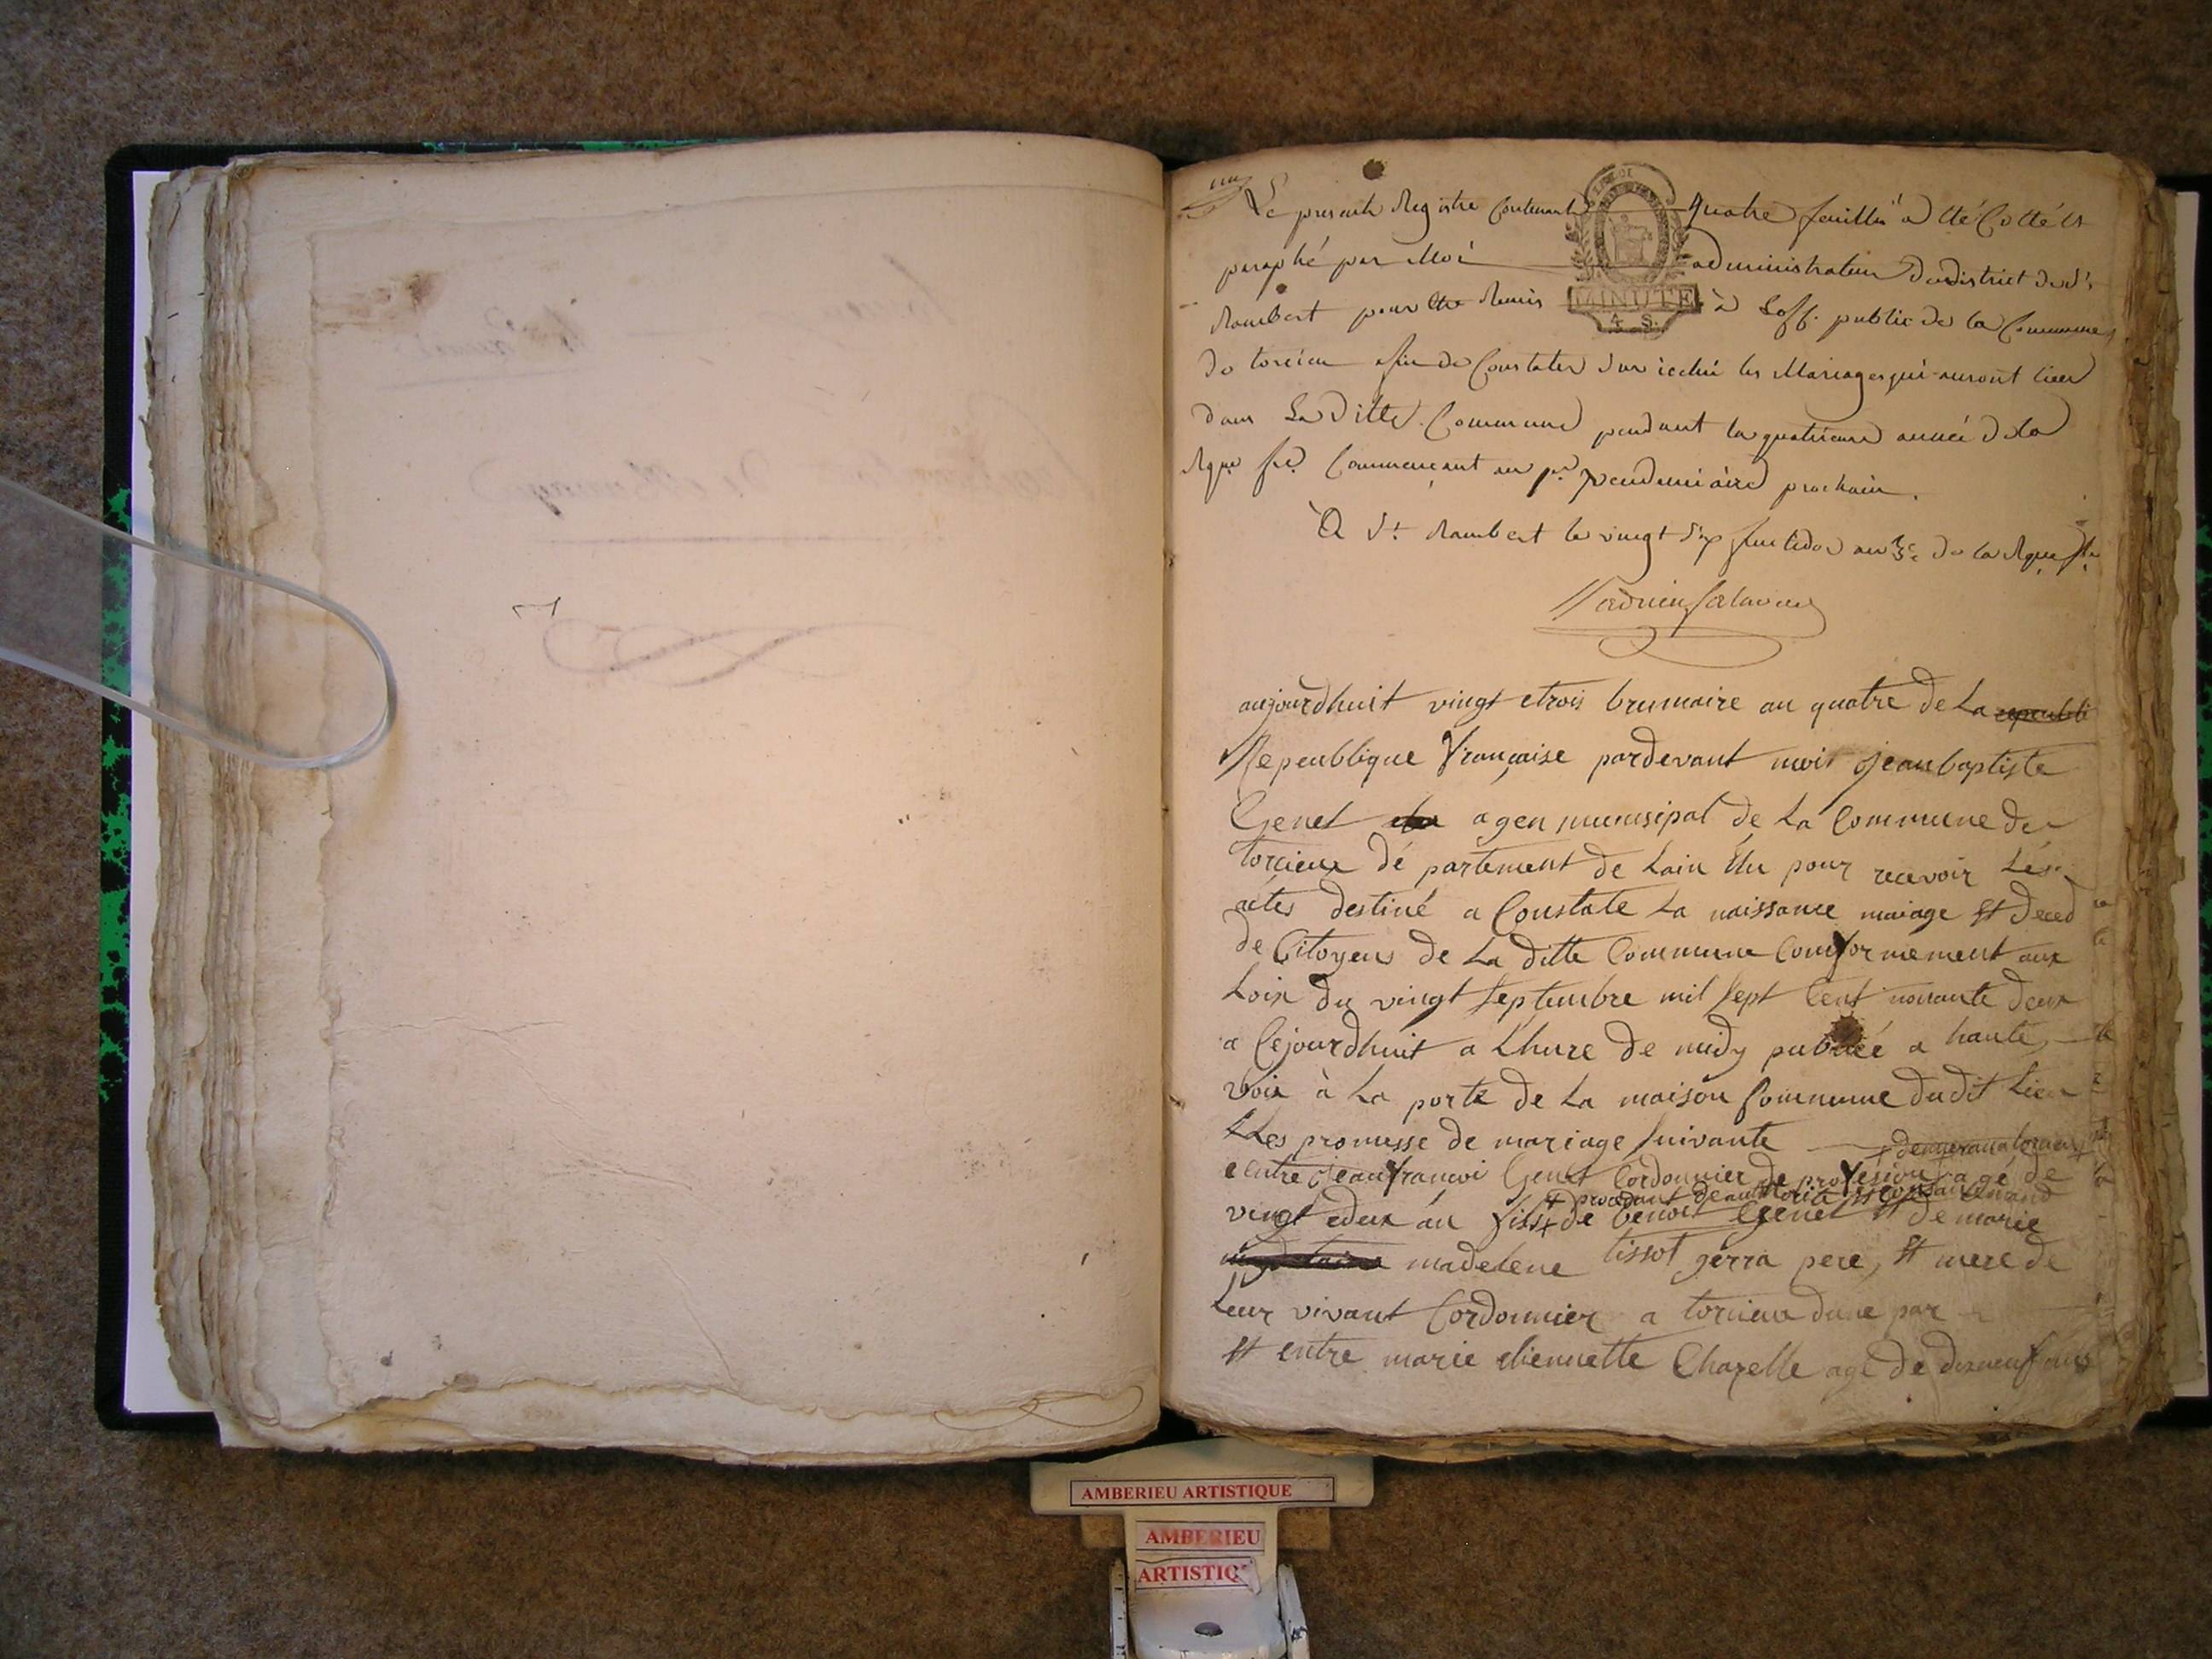 Le present Registre Contenant quatre feuillés a été Cotté et
paraphé par Moi administrateur du district de St
Rambert pour être Remis à Loff. public de la Commune
de torcieu afin de Constater sur icelui les Mariages qui auront lieu
dans La ditte Commune pendant la quatrieme année de la
Rque fse Commençant au pr vendemiaire prochain.
A St Rambert le vingt six fructidor an 3e de la Rque fse
MINUTE
4 S.
aujourdhuit vingt etrois brumaire an quatre de La
Repeublique française pardevant moit jeanbaptiste
Genet agen municipal de La Commune de
torcieux dé partement de Lain élu pour recevoir Lés
actes destiné a Constate La naissance maiage et deced
de Citoyens de La ditte Commune Conformement aux
Loix du vingt septembre mil sept Cent nonante deux
a Cejourdhuit a Lhure de midy publiéé a haute
voix à La porte de La maison Commune dudit Lieu
Les promesse de mariage suivante
entre jeanfrancoi Genet Cordonnier de profésion agé de
procedant de
vingt edeux án fils de benoit Genet et de marie
madelene tissot gerra pere, et mere de
Leur vivant Cordonnier a torcieux dune par
et entre marie etiennette Chapelle agé de dixneuf ans
AMBERIEU ARTISTIQUE
AMBERIEU
ARTISTIQ